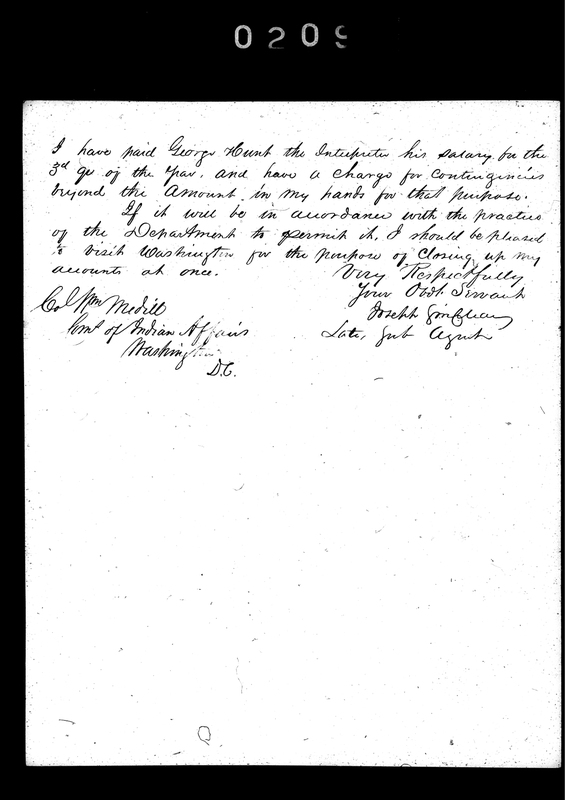 0209
I have paid George Hunt the Interpreter his salary for the
3d qr of the year, and have a charge for contingencies
beyond the amount in my hands for that purpose.
If it will be in accordance with the practice
of the Department to permit it, I should be pleased
to visit Washington for the purpose of closing up my
accounts at once.
Very Respectfully
Your Obdt Servant
Joseph
Late, Sub Agent
Col Wm Medill
Comr of Indian Affairs
Washington
D.C.